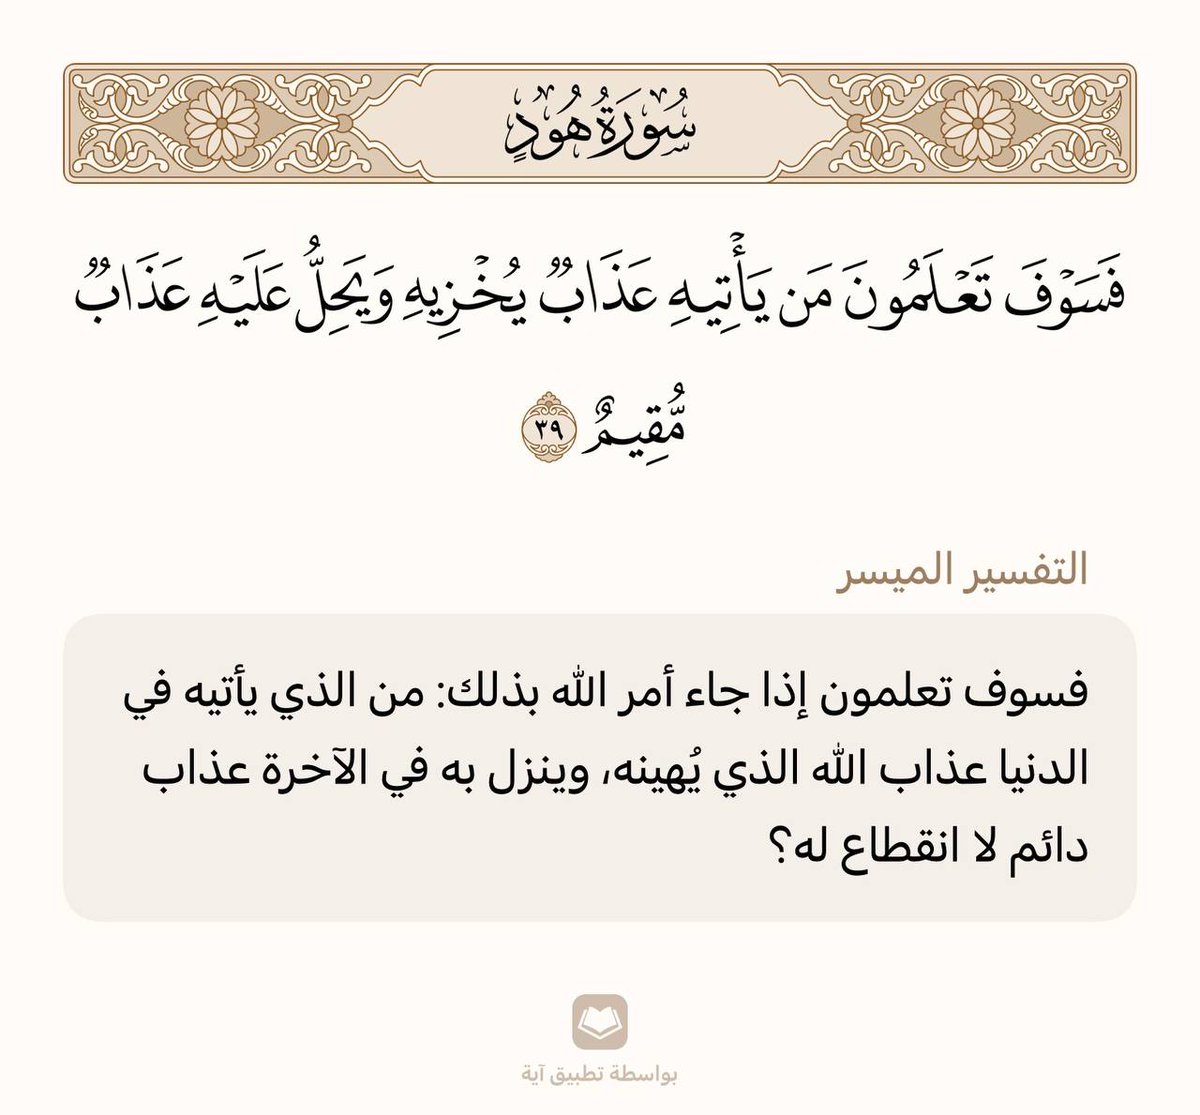 سُورَةُ هُودٍ
فَسَوۡفَ تَعۡلَمُونَ مَن يَأۡتِيهِ عَذَابٞ يُخۡزِيهِ وَيَحِلُّ عَلَيۡهِ عَذَابٞ
مُّقِيمٌ ٣٩
التفسير الميسر
فسوف تعلمون إذا جاء أمر الله بذلك: من الذي يأتيه في
الدنيا عذاب الله الذي يُهينه، وينزل به في الآخرة عذاب
دائم لا انقطاع له؟
بواسطة تطبيق آية